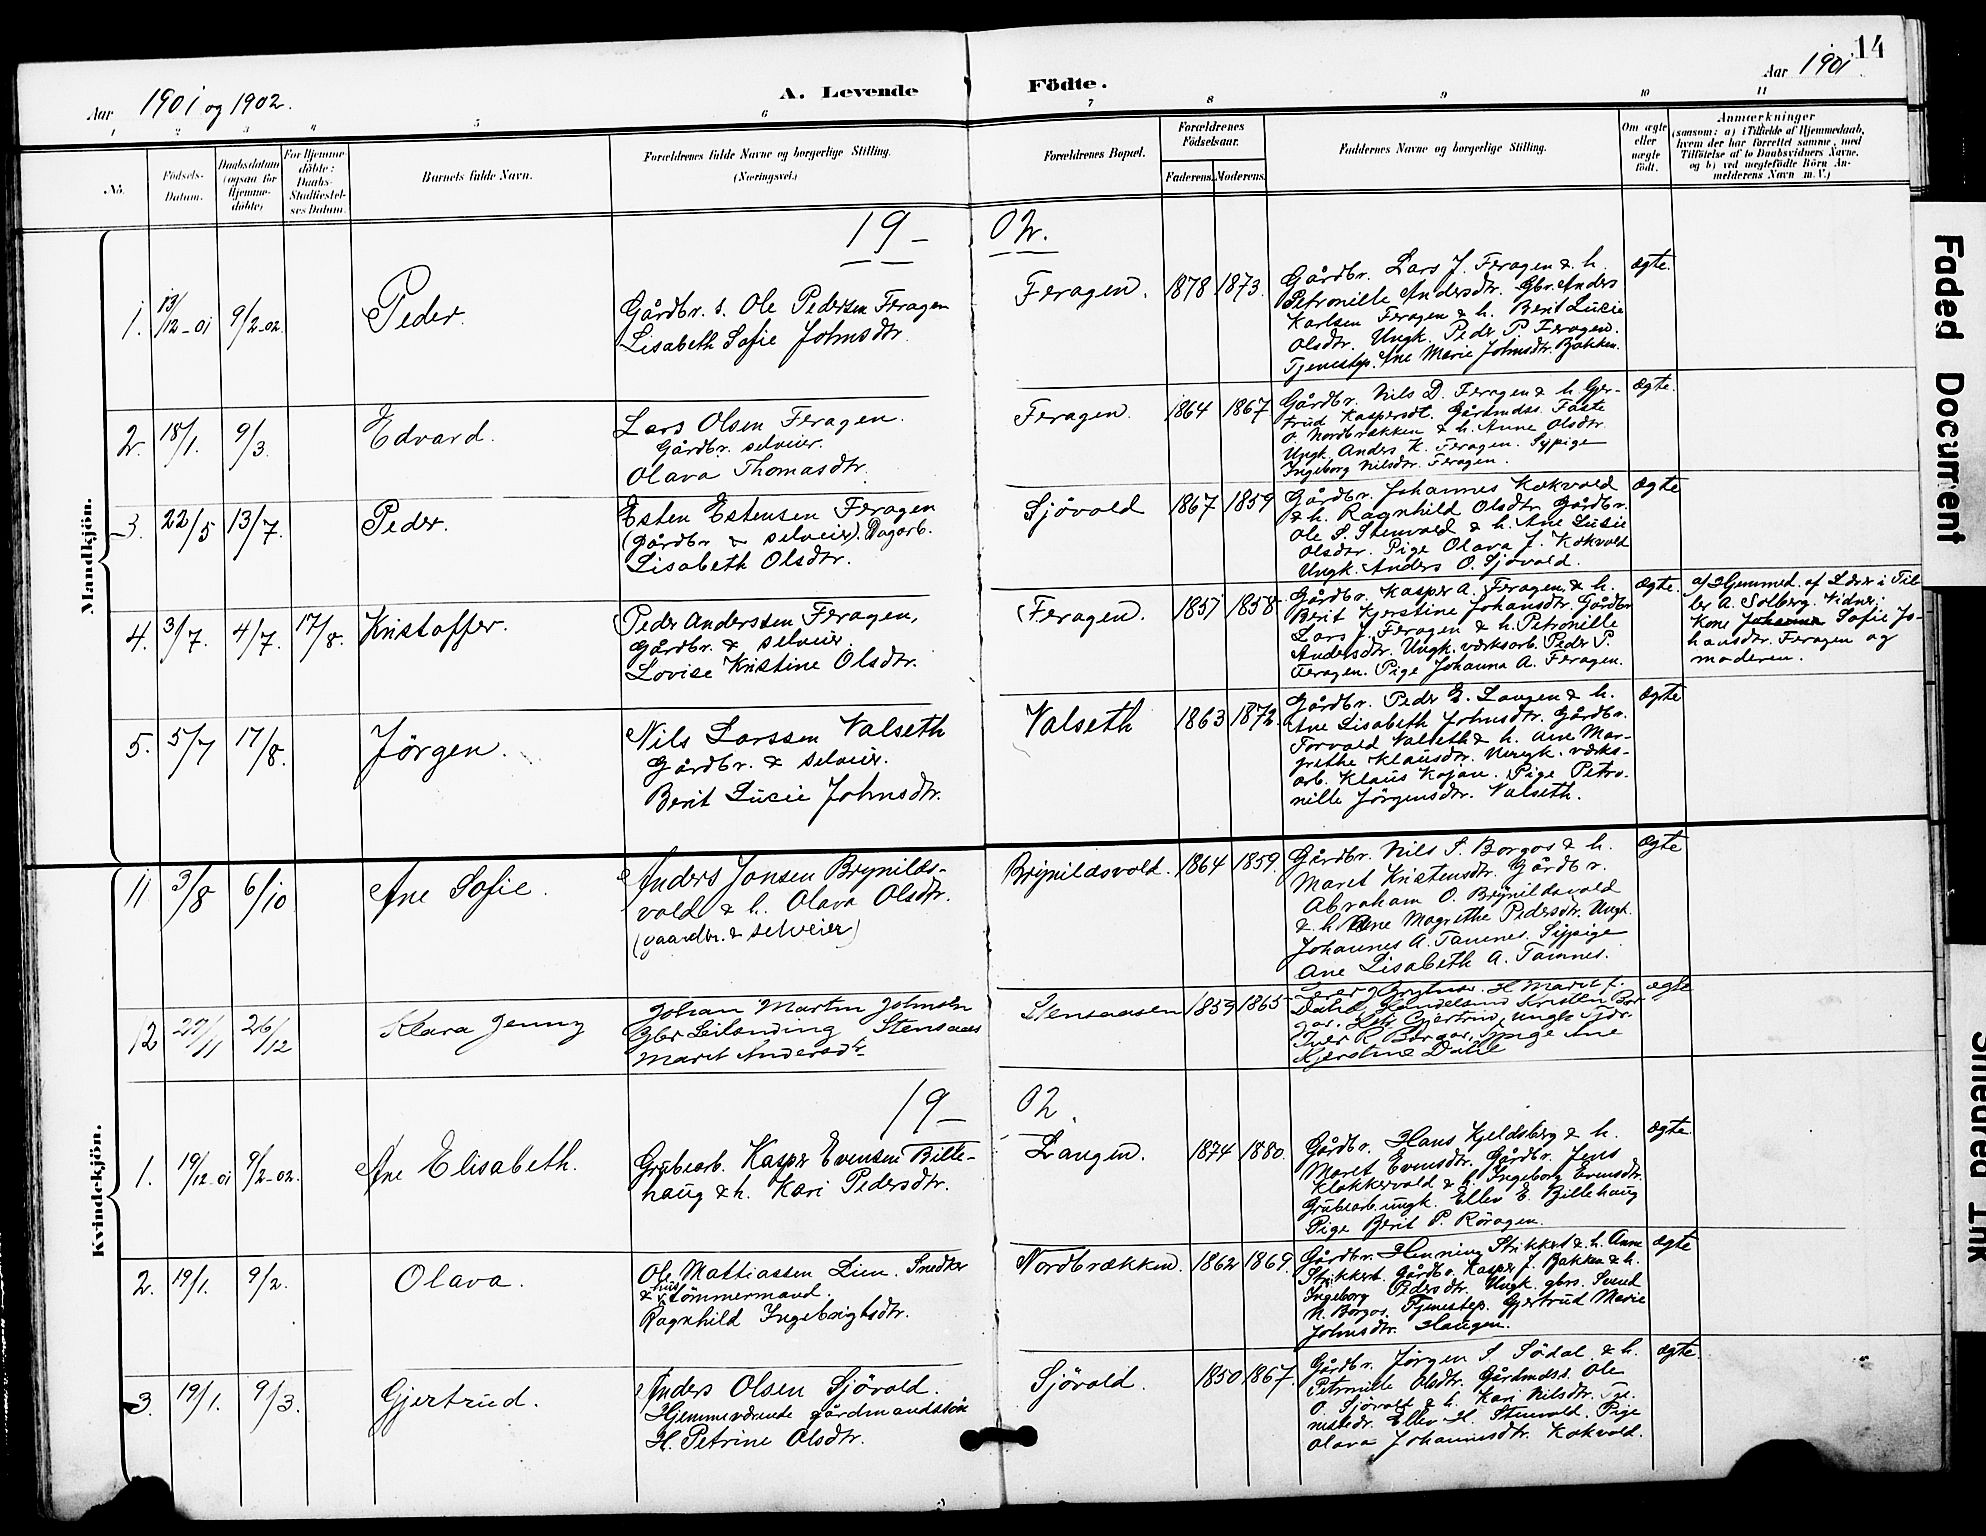 14
Aar 1901 og 1902.
A. Levende Födte.
Aar 1901
1 2 3 4 5 6 7 8 9 10 11
No.
Födsels-Datum.
Daabsdatum (ogsaa for Hjemme-döbte)
For Hjemme-döbte: Daabs-Stadfæstel-ses Datum.
Barnets fulde Navn.
Forældrenes fulde Navne og borgerlige Stilling.
(Næringsvei.)
Forældrenes Bopæl.
Forældrenes Födselsaar.
Faderens. Moderens.
Faddernes Navne og borgerlige Stilling.
Om ægte eller uægte födt.
Anmærkninger
(saasom: a) i Tilfælde af Hjemmedaab,
hvem der har forrettet samme, med
Tilföielse af to Daabsvidners Navne,
og b) ved uegtefödte Börn An-
melderens Navn m. V.)
Mandkjön.
19 - 02.
1. 13/12-01 9/2-02. Peder.
Gårdbr. s. Ole Pedersen Feragen
Lisabeth Sofie Johnsdtr.
Feragen. 1878 1873.
Gårdbr. Lars J. Feragen & h.
Petronille Andersdtr. Gbr. Anders
Karlsen Feragen & h. Berit Lucie
Olsdtr. Ungk. Peder P. Feragen.
Tjenestep. Ane Marie Johnsdtr. Bakken.
ægte.
2. 18/1. 9/3. Edvard.
Lars Olsen Feragen.
Gårdbr. selveier.
Olava Thomasdtr.
Feragen. 1864 1867
Gårdbr. Nils D. Feragen & h. Ger-
trud Kaspersdt. Gårdmdss. Faste
O. Nordbrækken & h. Anne Olsdtr.
Ungk. Anders K. Feragen. Sypige
Ingeborg Nilsdtr. Feragen.
ægte.
3. 22/5 13/7. Peder.
Esten Estensen Feragen
(Gårdbr & selveier). Dagarb.
Lisabeth Olsdtr.
Sjövold 1867 1859
Gårdbr. Johannes Kokvold
& h. Ragnhild Olsdtr. Gårdbr.
Ole S. Stenvold & h. Ane Lucie
Olsdtr. Pige Olava J. Kokvold
Ungk. Anders O. Sjövold.
ægte
4. 3/7. 4/7. 17/8. Kristoffer.
Peder Anderssen Feragen,
Gårdbr. & selveier.
Lovise Kristine Olsdtr.
Feragen. 1851 1858
Gårdbr. Kasper A. Feragen & h.
Berit Kjerstine Johansdtr. Gårdbr
Lars J. Feragen & h. Petronille
Andersdtr. Ungk. værksarb. Peder P.
Feragen. Pige Johanna A. Feragen.
ægte.
a) Hjemmed. af Lærer i Til
ler A. Solberg. Vidner:
Kone Johanna Sofie Jo-
hansdtr. Feragen og
moderen.
5. 5/7 17/8. Jörgen.
Nils Larssen Valseth
Gårdbr. & selveier.
Berit Lucie Johnsdtr.
Valseth 1863 1872.
Gårdbr. Peder E. Langen & h.
Ane Lisabeth Johnsdtr. Gårdbr.
Torvald Valseth & h. Ane Mar-
grethe Klausdtr. Ungk. værks-
arb. Klaus Kojan. Pige Petro-
nille Jörgensdtr. Valseth.
ægte
Kvindekjön.
11 3/8 6/10 Ane Sofie.
Anders Jonsen Brynilds-
vold & h. Olava Olsdtr.
(gaardbr. & selveier)
Brynildsvold. 1864 1859.
Gårdbr. Nils S. Borgos & h.
Maret Kristensdtr. Gårdbr.
Abraham O. Brynildsvold
& h. Ane Magrethe Pedersdtr. Ungk.
Johannes A. Tamnes. Sypige
Ane Lisabeth A. Tamnes.
ægte
12 27/11 26/12 Klara Jenny
Johan Martin Johnsen
Gbr Leilending Stensaas
Marit Andersdtr
Stensaasen 1859 1865
Maret J.
Dahl, Handelsmd Kristen Bor
gos, Gjertrud, Ungk
Iver R Borgos, Sypige Ane
Kjerstine Dahl
ægte
19 - 02.
1. 19/12-01 9/2-02. Ane Elisabeth.
Grubearb. Kasper Evensen Bille-
haug & h. Kari Pedersdtr.
Langen. 1874 1880.
Gårdbr. Hans Kjeldsberg & h.
Maret Evensdtr. Gårdbr. Jens
Klokkervold & h. Ingeborg Evensdtr.
Grubearb. ungk. Ellev E. Billehaug
Pige Berit P. Röragen.
ægte.
2. 19/1. 9/2. Olava.
Ole Mattiassen Lien. Snedker
& hustömmermand.
Ragnhild Ingebrigtsdtr.
Nordbrækken. 1862 1869.
Gårdbr. Henning Strikkert & h. Anne
Strikkert. Gårdbr. Kasper J. Bakken & h.
Ingeborg Pedersdtr. Ungk. gbrs. Svend
N. Borgos. Tjenestep. Gjertrud Marie
Johnsdtr. Haugen.
ægte
3. 19/1. 9/3. Gjertrud.
Anders Olsen Sjövold.
Hjemmeværende gårdmandssön
H. Petrine Olsdtr.
Sjövold. 1850 1867.
Gårdbr. Jörgen S. Södal & h.
Petronille Olsdtr. Gårdmdss. Ole
O. Sjövold & h. Kari Nilsdtr. Tje-
nestedr. Ellev H. Stenvold. Pige
Olava Johannesdtr. Kokvold.
ægte.
Faded Document
Smeared Ink